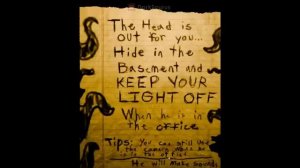 The Head is
out for you...
Hide in the
Basement and
KEEP YOUR
LIGHT OFF
When he is in
the office
Tips: You can still use
the camera when he
is in the office
He will make sounds